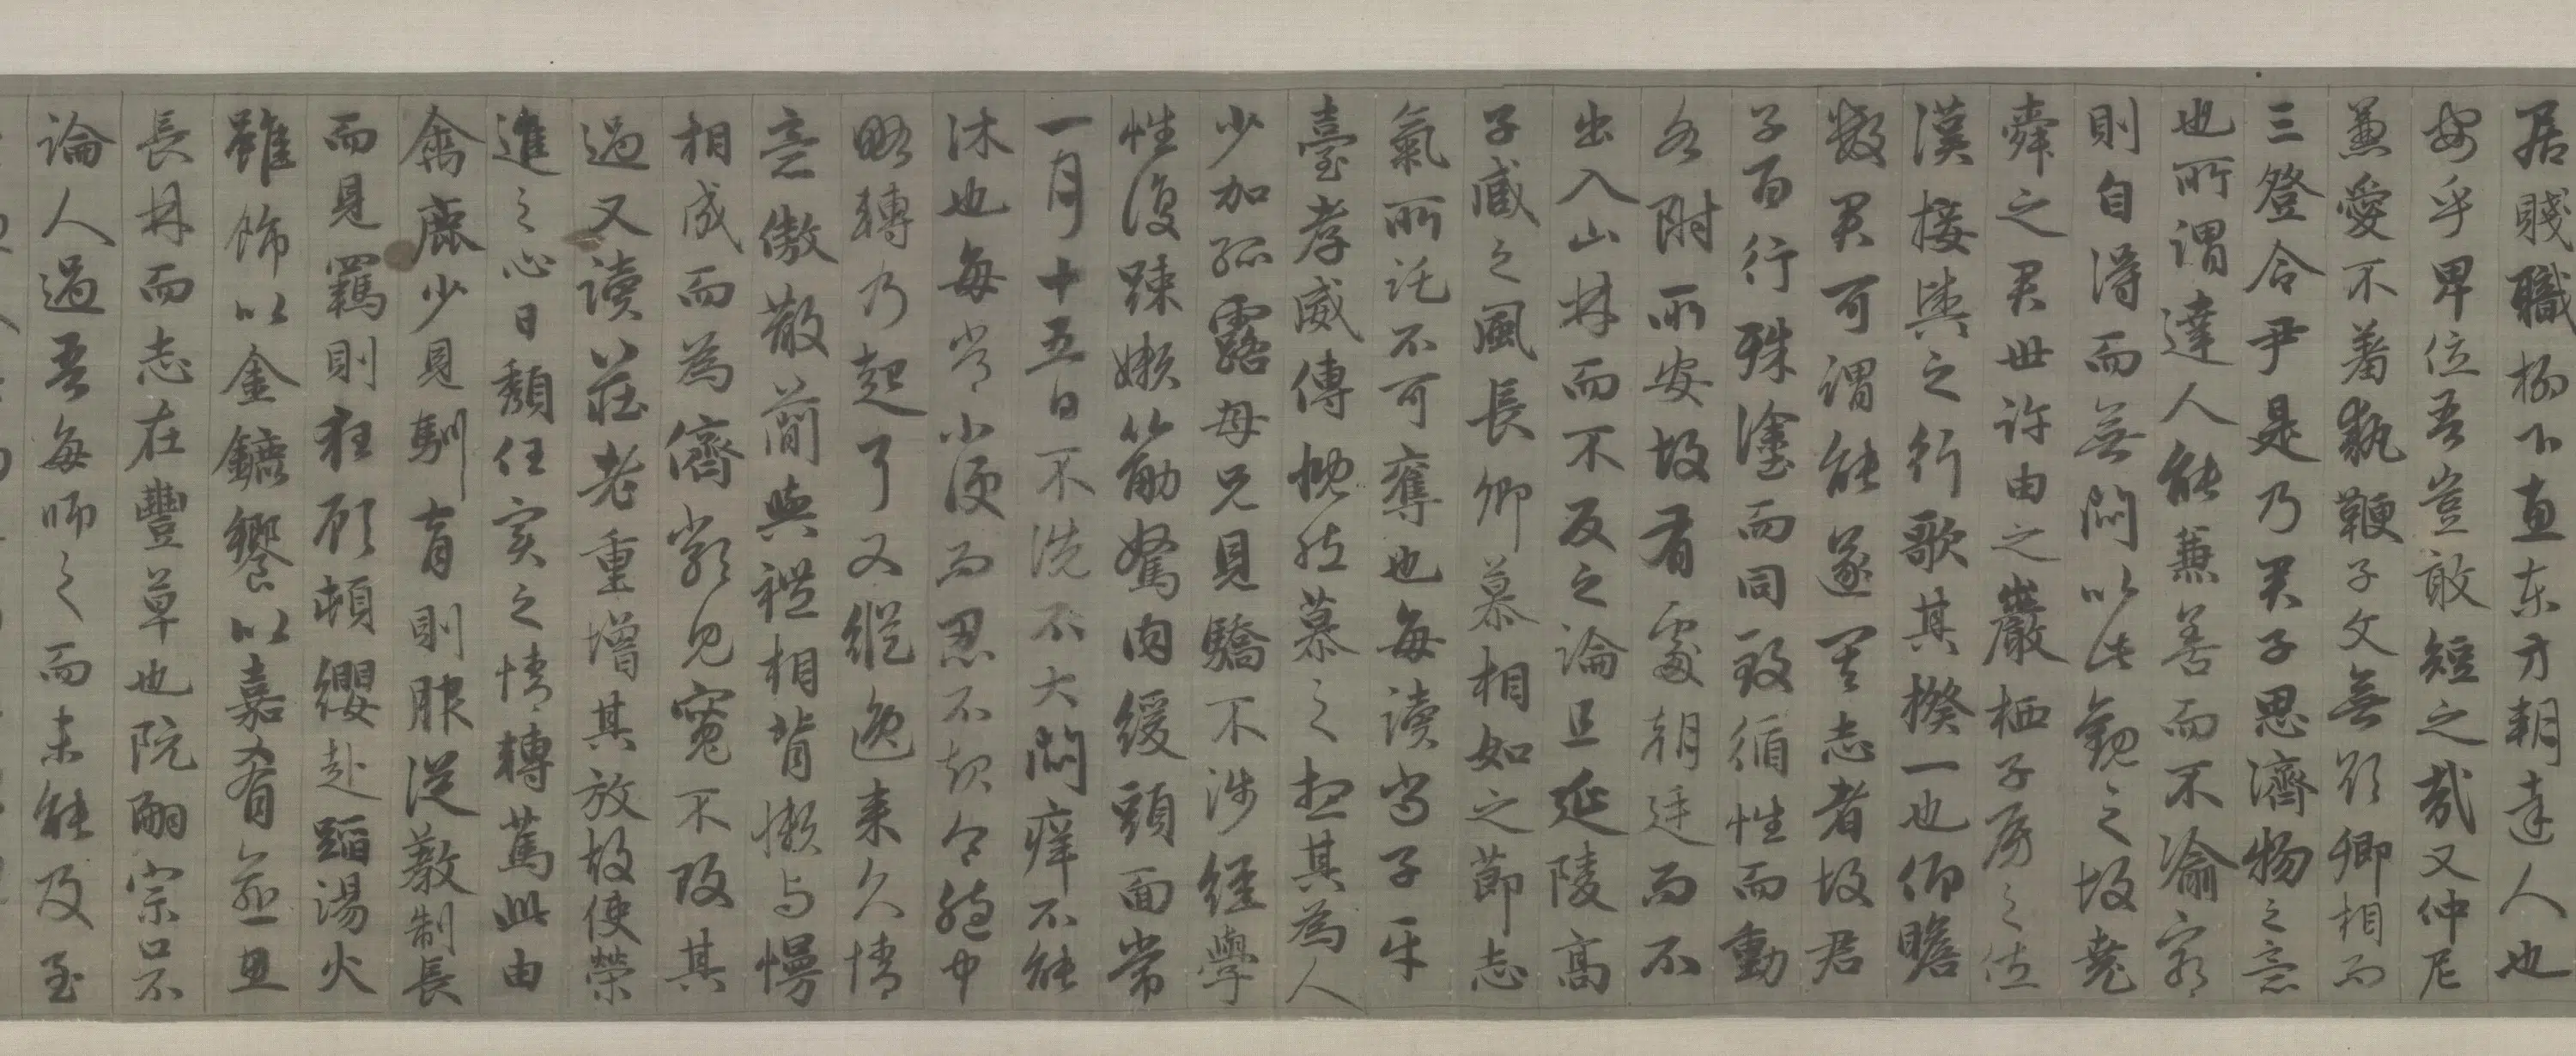 居賤職柳下惠東方朔達人也
安乎卑位吾豈敢短之哉又仲尼
兼愛不羞執鞭子文無欲卿相而
三登令尹是乃君子思濟物之意
也所謂達人能兼善而不渝窮
則自得而無悶以此觀之故堯
舜之君世許由之巖栖子房之佐
漢接輿之行歌其揆一也仰瞻
數君可謂能遂其志者故君
子百行殊塗而同致循性而動
各附所安故有處朝廷而不
出入山林而不反之論且延陵高
子臧之風長卿慕相如之節志
氣所託不可奪也每讀尚子平
臺孝威傳慨然慕之想其為人
少加孤露母兄見驕不涉經學
性復疎嬾筋駑肉緩頭面常
一月十五日不洗不大悶癢不能
沐也每常小便而忍不起令胞中
略轉乃起耳又縱逸來久情
意傲散簡與禮相背懶与慢
相成而為儕類見寬不攻其
過又讀莊老重增其放故使榮
進之心日頹任實之情轉篤此由
禽鹿少見馴育則服從教制長
而見羈則狂顧頓纓赴蹈湯火
雖飾以金鑣饗以嘉肴逾思
長林而志在豐草也阮嗣宗口不
論人過吾每師之而未能及至